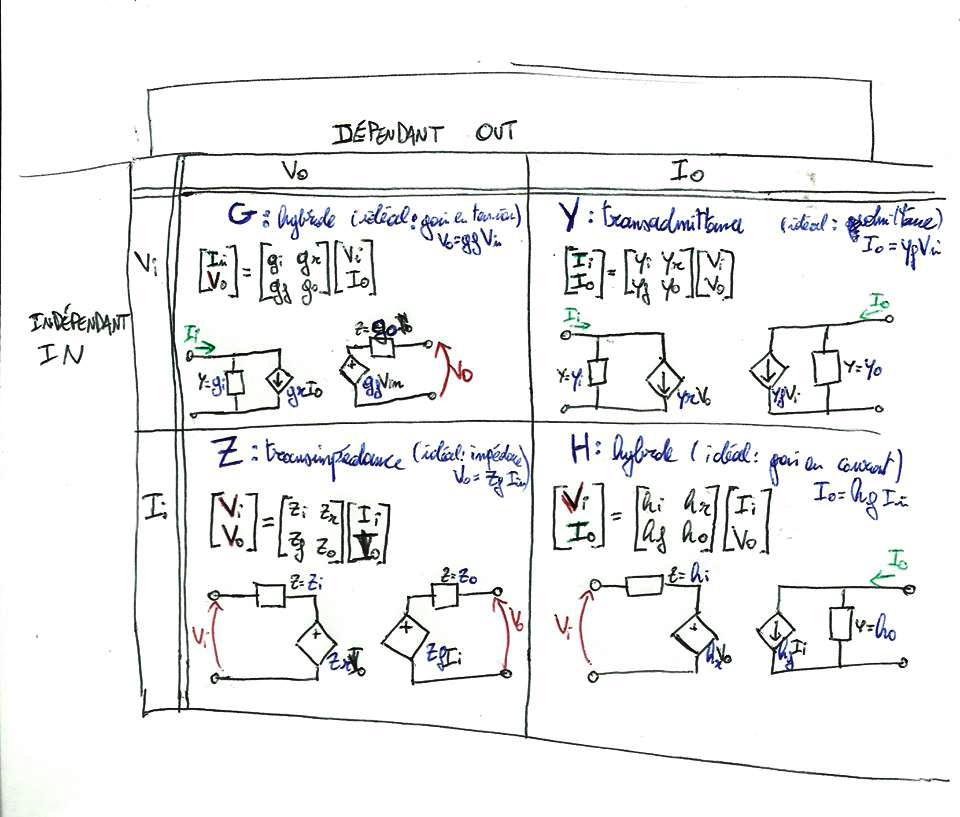 DÉPENDANT OUT
Vo
Io
INDÉPENDANT
IN
Vi
G : hybride (idéal : gain en tension)
Vo = gf Vin
[Iin Vo] = [gi gr gf go] [Vi Io]
Ii
Y=gi
gr Io
Z=go
gf Vin
Vo
Y : transadmittance (idéal : admittance)
Io = yf Vin
[Ii Io] = [yi yr yf yo] [Vi Vo]
Ii
Io
Y=yi
yr Vo
yf Vi
Y=yo
Ii
Z : transimpédance (idéal : impédance)
Vo = zf Iin
[Vi Vo] = [zi zr zf zo] [Ii Io]
Z=zi
Z=zo
Vi
zr Io
zf Ii
Vo
H : hybride (idéal : gain en courant)
Io = hf Iin
[Vi Io] = [hi hr hf ho] [Ii Vo]
Z=hi
Io
Vi
hr Vo
hf Ii
Y=ho